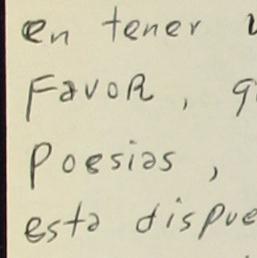 en tener
Favor, q
Poesias,
esta dispue